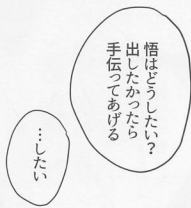 悟はどうしたい？
出したかったら
手伝ってあげる
…したい